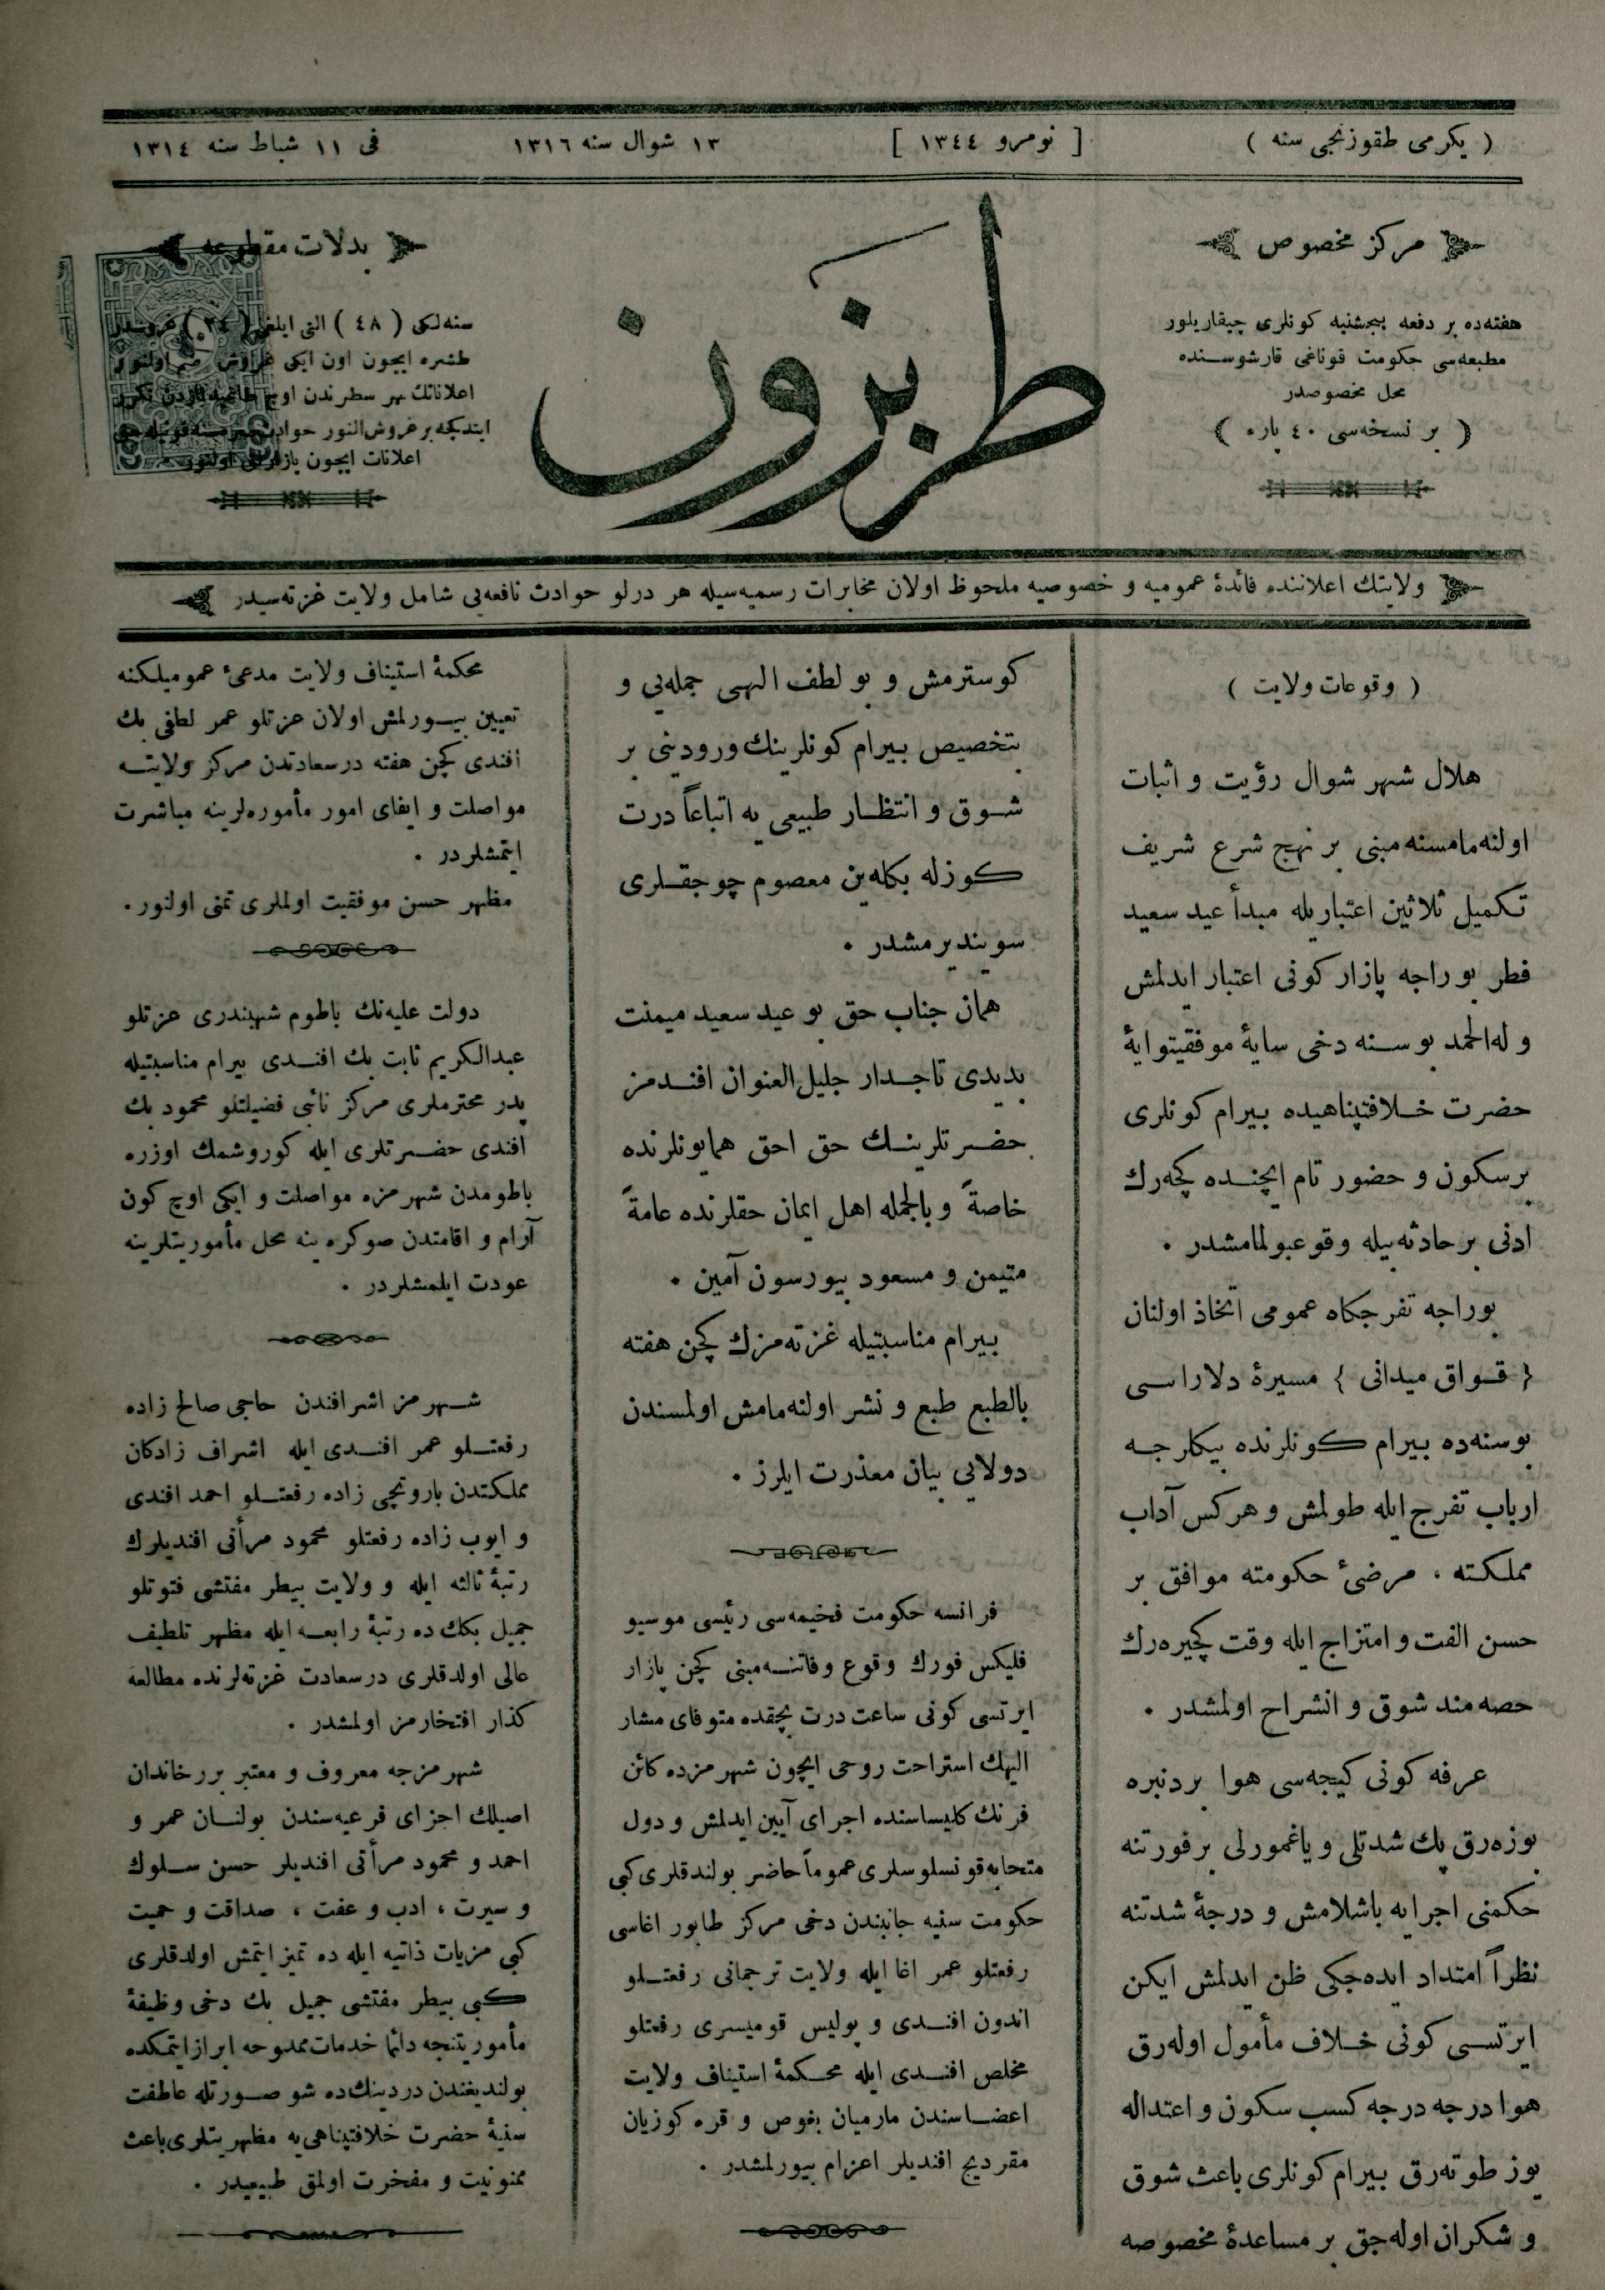 ( یکرمی طقوزنجی سنه )
[ نومرو ١٣٤٤ ]
١٣ شوال سنه ١٣١٦
فی ١١ شباط سنه ١٣١٤
مرکز مخصوص
هفته‌ده بر دفعه پنجشنبه کونلری چیقاریلور
مطبعه‌سی حکومت قوناغی قارشوسنده
محل مخصوصدر
( بر نسخه‌سی ٤٠ پاره )
طربزون
بدلات مقطوعه
سنه‌لکی ( ٤٨ ) التی ایلغی ( ٢٤ ) غروشدر
طشره ایچون اون ایکی غروش ضم اولنور
اعلاناتك بهر سطرندن اوچ
ایتدکجه بر غروش النور
اعلانات ایچون بازارلق اولنور
ولایتك اعلاننده فائدهٔ عمومیه و خصوصیه ملحوظ اولان مخابرات رسمیه‌سیله هر درلو حوادث نافعه‌یی شامل ولایت غزته‌سیدر
( وقوعات ولایت )
هلال شهر شوال رؤیت و اثبات
اولنه‌مامسنه مبنی بر نهج شرع شریف
تکمیل ثلاثین اعتباریله مبدأ عید سعید
فطر بوراجه پازار کونی اعتبار ایدلمش
و له‌الحمد بو سنه دخی سایهٔ موفقیتوایهٔ
حضرت خلافتپناهیده بیرام کونلری
بر سکون و حضور تام ایچنده کچه‌رك
ادنی بر حادثه بیله وقوعبولمامشدر ٠
بوراجه تفرجکاه عمومی اتخاذ اولنان
{ قواق میدانی } مسیرهٔ دلاراسی
بوسنه‌ده بیرام کونلرنده بیکلرجه
ارباب تفرج ایله طولمش و هرکس آداب
مملکته ، مرضیٔ حکومته موافق بر
حسن الفت و امتزاج ایله وقت کچیره‌رك
حصه‌مند شوق و انشراح اولمشدر ٠
عرفه کونی کیجه‌سی هوا بردنبره
بوزه‌رق پك شدتلی و یاغمورلی بر فورتنه
حکمنی اجرایه باشلامش و درجهٔ شدتنه
نظراً امتداد ایده‌جکی ظن ایدلمش ایکن
ایرتسی کونی خلاف مأمول اوله‌رق
هوا درجه درجه کسب سکون و اعتداله
یوز طوته‌رق بیرام کونلری باعث شوق
و شکران اوله‌جق بر مساعدهٔ مخصوصه
کوسترمش و بو لطف الهی جمله‌یی و
بتخصیص بیرام کونلرینك ورودینی بر
شوق و انتظار طبیعی یه اتباعاً درت
کوزله بکله‌ین معصوم چوجقلری
سویندیرمشدر ٠
همان جناب حق بو عید سعید میمنت
بدیدی تاجدار جلیل‌العنوان افندمز
حضرتلرینك حق احق همایونلرنده
خاصةً و بالجمله اهل ایمان حقلرنده عامةً
متیمن و مسعود بیورسون آمین ٠
بیرام مناسبتیله غزته‌مزك کچن هفته
بالطبع طبع و نشر اولنه‌مامش اولمسندن
دولایی بیان معذرت ایلرز ٠
فرانسه حکومت فخیمه‌سی رئیسی موسیو
فلیکس فورك وقوع وفاتنه مبنی کچن پازار
ایرتسی کونی ساعت درت بچقده متوفای مشار
الیهك استراحت روحی ایچون شهرمزده کائن
فرنك کلیساسنده اجرای آیین ایدلمش و دول
متحابه قونسلوسلری عموماً حاضر بولندقلری کبی
حکومت سنیه جانبندن دخی مرکز طابور اغاسی
رفعتلو عمر اغا ایله ولایت ترجمانی رفعتلو
اندون افندی و پولیس قومیسری رفعتلو
مخلص افندی ایله محکمهٔ استیناف ولایت
اعضاسندن مارمیان بغوص و قره کوزیان
مقردیج افندیلر اعزام بیورلمشدر ٠
محکمهٔ استیناف ولایت مدعیٔ عمومیلکنه
تعیین بیورلمش اولان عزتلو عمر لطفی بك
افندی کچن هفته درسعادتدن مرکز ولایته
مواصلت و ایفای امور مأموره‌لرینه مباشرت
ایتمشلردر ٠
مظهر حسن موفقیت اولملری تمنی اولنور٠
دولت علیه‌نك باطوم شهبندری عزتلو
عبدالکریم ثابت بك افندی بیرام مناسبتیله
پدر محترملری مرکز نائبی فضیلتلو محمود بك
افندی حضرتلری ایله کوروشمك اوزره
باطومدن شهرمزه مواصلت و ایکی اوچ کون
آرام و اقامتدن صوکره ینه محل مأموریتلرینه
عودت ایلمشلردر ٠
شهرمز اشرافندن حاجی صالح زاده
رفعتلو عمر افندی ایله اشراف زادکان
مملکتدن باروتچی زاده رفعتلو احمد افندی
و ایوب زاده رفعتلو محمود مرأتی افندیلرك
رتبهٔ ثالثه ایله و ولایت بیطر مفتشی فتوتلو
جمیل بکك ده رتبهٔ رابعه ایله مظهر تلطیف
عالی اولدقلری درسعادت غزته‌لرنده مطالعه
کذار افتخارمز اولمشدر ٠
شهرمزجه معروف و معتبر برر خاندان
اصیلك اجزای فرعیه‌سندن بولنان عمر و
احمد و محمود مرأتی افندیلر حسن سلوك
و سیرت ، ادب و عفت ، صداقت و حمیت
کبی مزیات ذاتیه ایله ده تمیز ایتمش اولدقلری
کبی بیطر مفتشی جمیل بك دخی وظیفهٔ
مأموریتنجه دائما خدمات ممدوحه ابراز ایتمکده
بولندیغندن دردینك ده شو صورتله عاطفت
سنیهٔ حضرت خلافتپناهی یه مظهریتلری باعث
ممنونیت و مفخرت اولمق طبیعیدر ٠